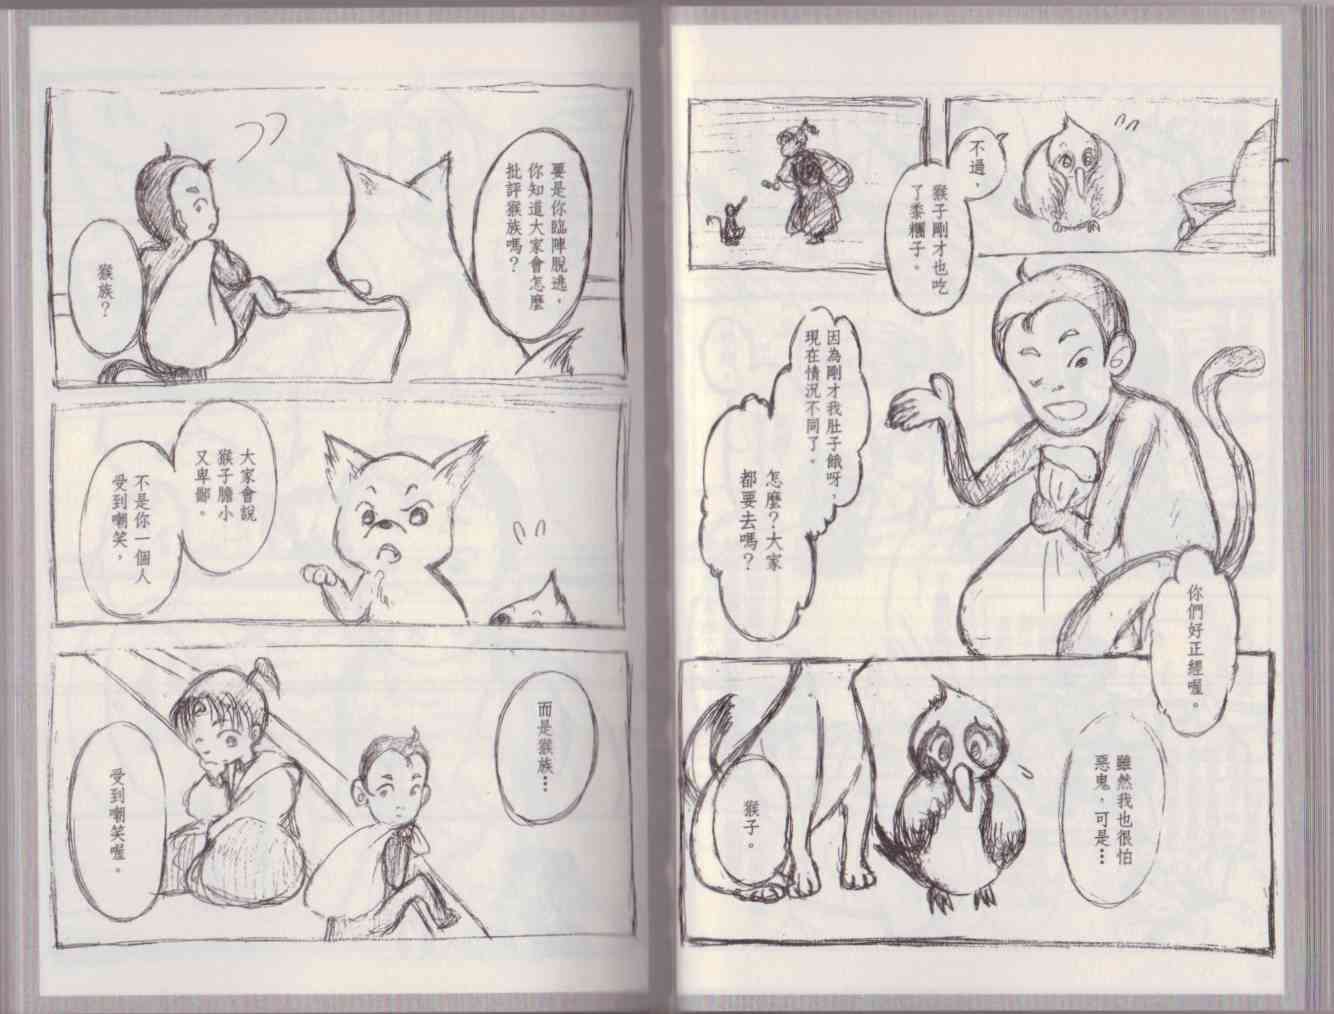 不過，
猴子剛才也吃
了黍糰子。
因為剛才我肚子餓呀，
現在情況不同了。
怎麼？大家
都要去嗎？
你們好正經喔。
雖然我也很怕
惡鬼，可是…
猴子。
要是你臨陣脫逃，
你知道大家會怎麼
批評猴族嗎？
猴族？
大家會說
猴子膽小
又卑鄙。
不是你一個人
受到嘲笑，
而是猴族…
受到嘲笑喔。